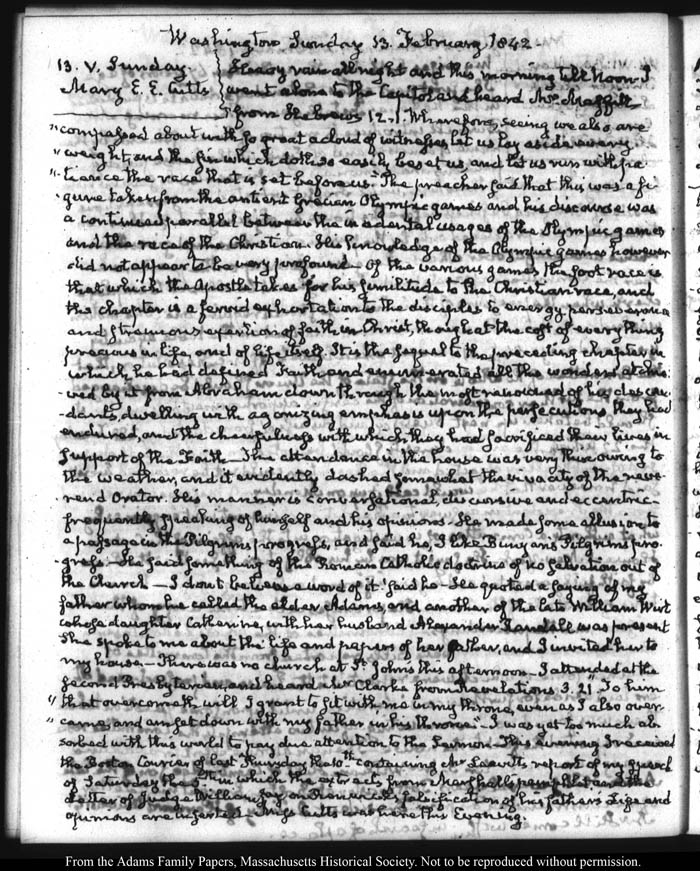 Washington Sunday 13. February 1842.
13. V. Sunday.
Mary E. E. Cutts
Heavy rain all night and this morning till Noon. I
went alone to the Capitol and heard Mr. Maffitt
from Hebrews 12. 1. Wherefore, seeing we also are
"compassed about with so great a cloud of witnesses, let us lay aside every
"weight, and the sin which doth so easily beset us, and let us run with pa-
"tience the race that is set before us." The preacher said that this was a fi-
gure taken from the antient Grecian Olympic games and his discourse was
a continued parallel between the incidental usages of the Olympic games
and the race of the Christian. His knowledge of the Olympic games however
did not appear to be very profound. Of the various games the foot race is
that which the Apostle takes for his similitude to the Christian race, and
the chapter is a fervid exhortation to the disciples to energy perseverance
and strenuous exertion of faith in Christ, though at the cost of every thing
precious in life, and of life itself. It is the sequel to the preceding chapter in
which, he had defined Faith, and enumerated all the wonders atchie-
ved by it from Abraham down through the most renowned of his descen-
dants, dwelling with agonizing emphasis upon the persecutions they had
endured, and the chearfulness with which they had sacrificed their lives in
support of the Faith— The attendance in the house was very thin owing to
the weather, and it evidently dashed somewhat the vivacity of the reve-
rend Orator. His manner is conversational, discursive and eccentric—
frequently speaking of himself and his opinions. He made some allusion to
a passage in the Pilgrims progress, and said he, I like Bunyan's Pilgrims pro-
gress— He said something of the Roman Catholic doctrine of no salvation out of
the Church— I dont believe a word of it! said he— He quoted a saying of my
father whom he called the elder Adams, and another of the late William Wirt
whose daughter Catherine, with her husband Alexander Randall was present
She spoke to me about the life and papers of her father, and I invited her to
my house— There was no church at St. John's this afternoon— I attended at the
second Presbyterian, and heard Mr Clarke from Revelations 3. 21. "To him
"that overcometh will I grant to sit with me in my throne, even as I also over-
"came, and am set down with my father in his throne"— I was yet too much ab-
sorbed with this world to pay due attention to the Sermon— This evening I received
the Boston Courier of last Thursday the 10th containing Mr Leavitt's report of my speech
of Saturday the in which the extracts from Marshall's pamphlet and the
Letter of Judge William Jay on falsification of his father's Life and
opinions are inserted— Miss Cutts was here this Evening.
From the Adams Family Papers, Massachusetts Historical Society. Not to be reproduced without permission.